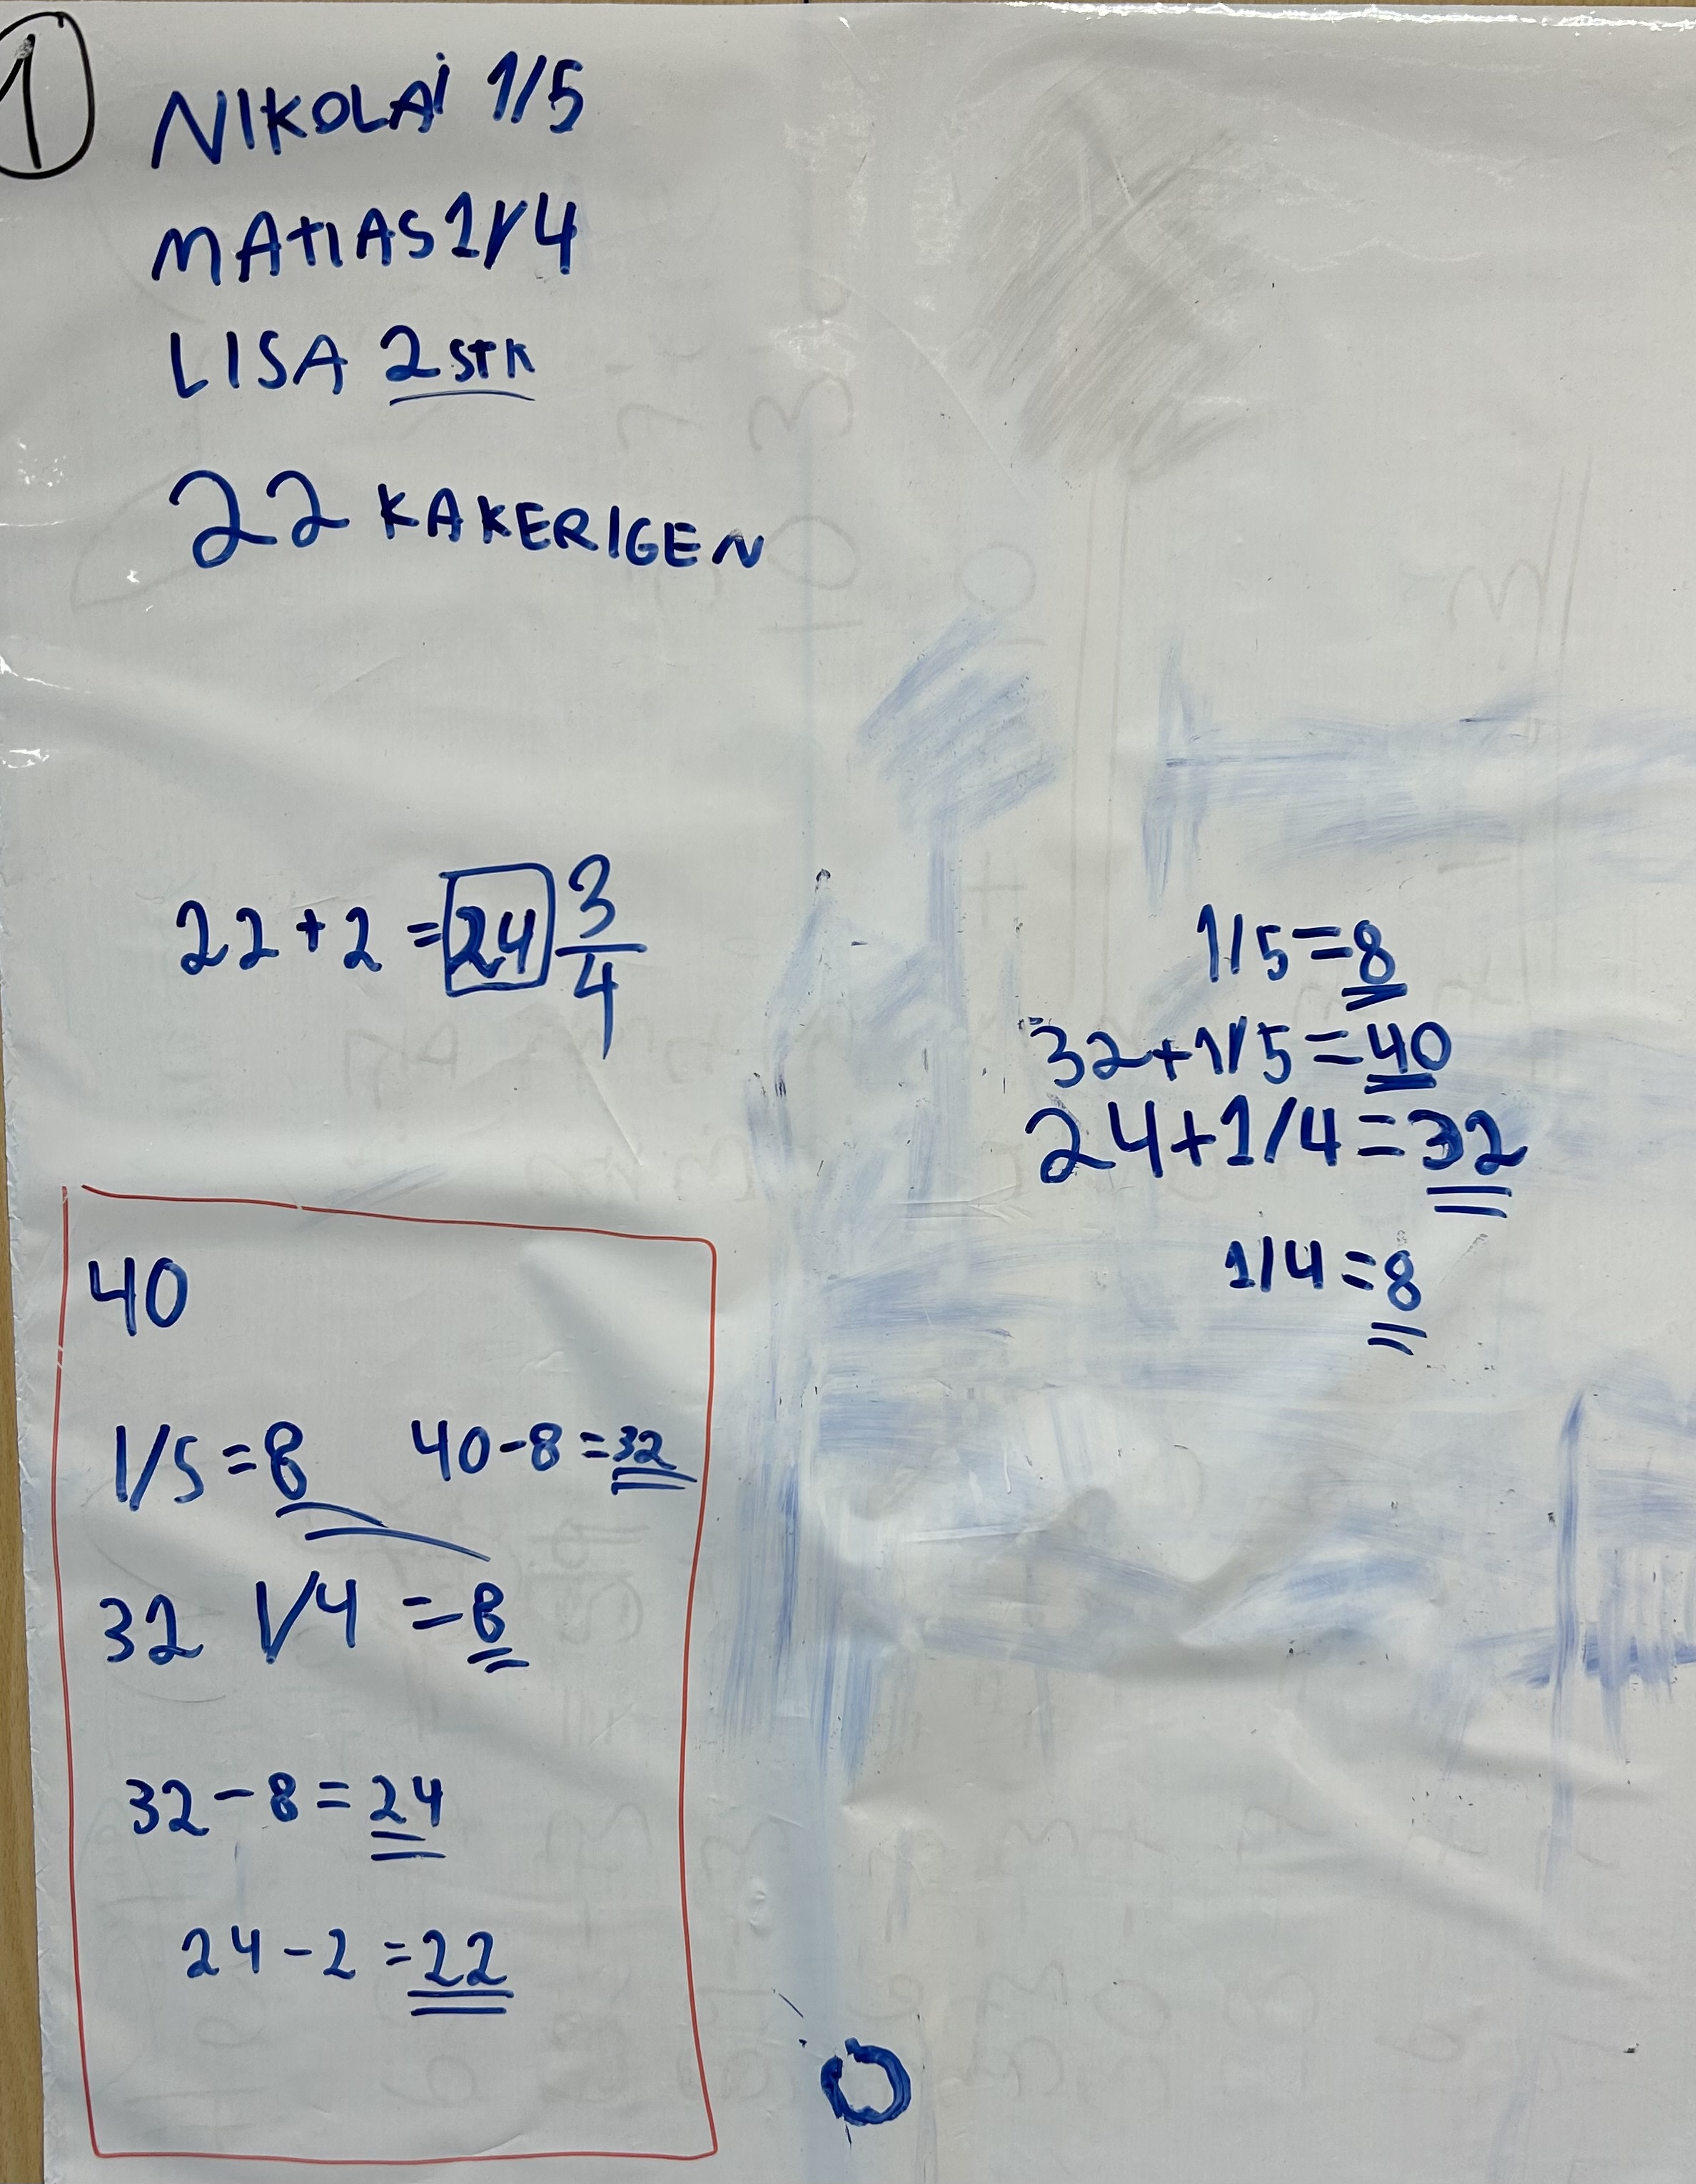 1
NIKOLAi 1/5
MATIAS 1/4
LISA 2 STK
22 KAKER IGEN
22 + 2 = 24 3/4
1/5 = 8
32 + 1/5 = 40
24 + 1/4 = 32
1/4 = 8
40
1/5 = 8 40 - 8 = 32
32 1/4 = 8
32 - 8 = 24
24 - 2 = 22